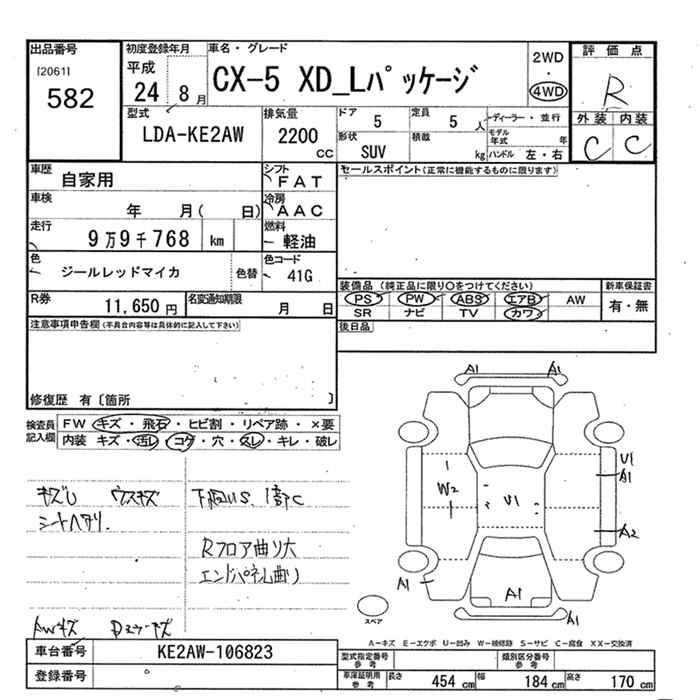 出品番号
[2061]
582
初度登録年月
平成
24 8 月
車名・グレード
CX-5 XD_Lパッケージ
2WD
4WD
評価点
R
外装 内装
C C
型式
LDA-KE2AW
排気量
2200 cc
ドア 5
定員 5 人
形状 SUV
積載 kg
ディーラー・並行
モデル年式 年
ハンドル 左・右
車歴 自家用
シフト FAT
セールスポイント(正常に機能するものに限ります)
車検 年 月( 日)
冷房 AAC
走行 9万9千768 km
燃料 軽油
色 ジールレッドマイカ
色替
色コード 41G
装備品 (純正品に限り○をつけてください)
新車保証書
PS PW ABS エアB AW
SR ナビ TV カワ
有・無
R券 11,650 円
名変通知期限 月 日
後日品
注意事項申告欄(不具合内容等は具体的に記入して下さい)
修復歴 有〔箇所 〕
検査員記入欄
FW キズ・飛石・ヒビ割・リペア跡・×要
内装 キズ・汚レ・コゲ・穴・スレ・キレ・破レ
キズU ウスキズ
シートヘタリ.
下廻US. 1部C
Rフロア曲り大
エンドパネル曲り
AWキズ
A1 A1
U1
A1
W2
U1
A2
A1
A1
A1
スペア
A-キズ E-エクボ U-凹み W-補修跡 S-サビ C-腐食 XX-交換済
車台番号 KE2AW-106823
登録番号
型式指定番号 参考
類別区分番号 参考
車庫証明用 参考
長さ 454 cm
幅 184 cm
高さ 170 cm